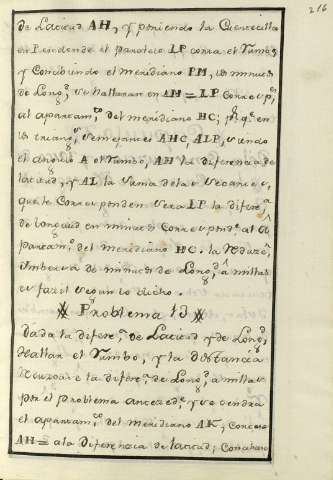 216
de Latitud AH, y poniendo la Cuerecilla
en P, en donde el paralelo LP corta el Rumbo,
y Concibiendo el meridiano PM, los minutos
de Long.d se hallaran en AH = LP Corresp.s
al apartam.to del meridiano HC; p.r q.e en
los triang.s semejantes AHC, ALP, siendo
el angulo A el Rumbo, AH la diferencia de
latitud, y AL la suma de las secantes,
que le Corresponden sera LP la difer.a
de longitud en minutos Correspond.s al A
partam.to del meridiano HC. la Reduz.n
inversa de minutos de Long.d a millas
es facil segun lo dicho.
Problema 13
Dada la difere.a de Latitud y de Long.d
Hallar el Rumbo, y la Distancia
Reduzcase la difer.a de Long.d a millas
por el problema anteced.e, y se tendra
el apartam.to del meridiano AK; Conozco
AH = a la Diferencia de latitud; Conocho